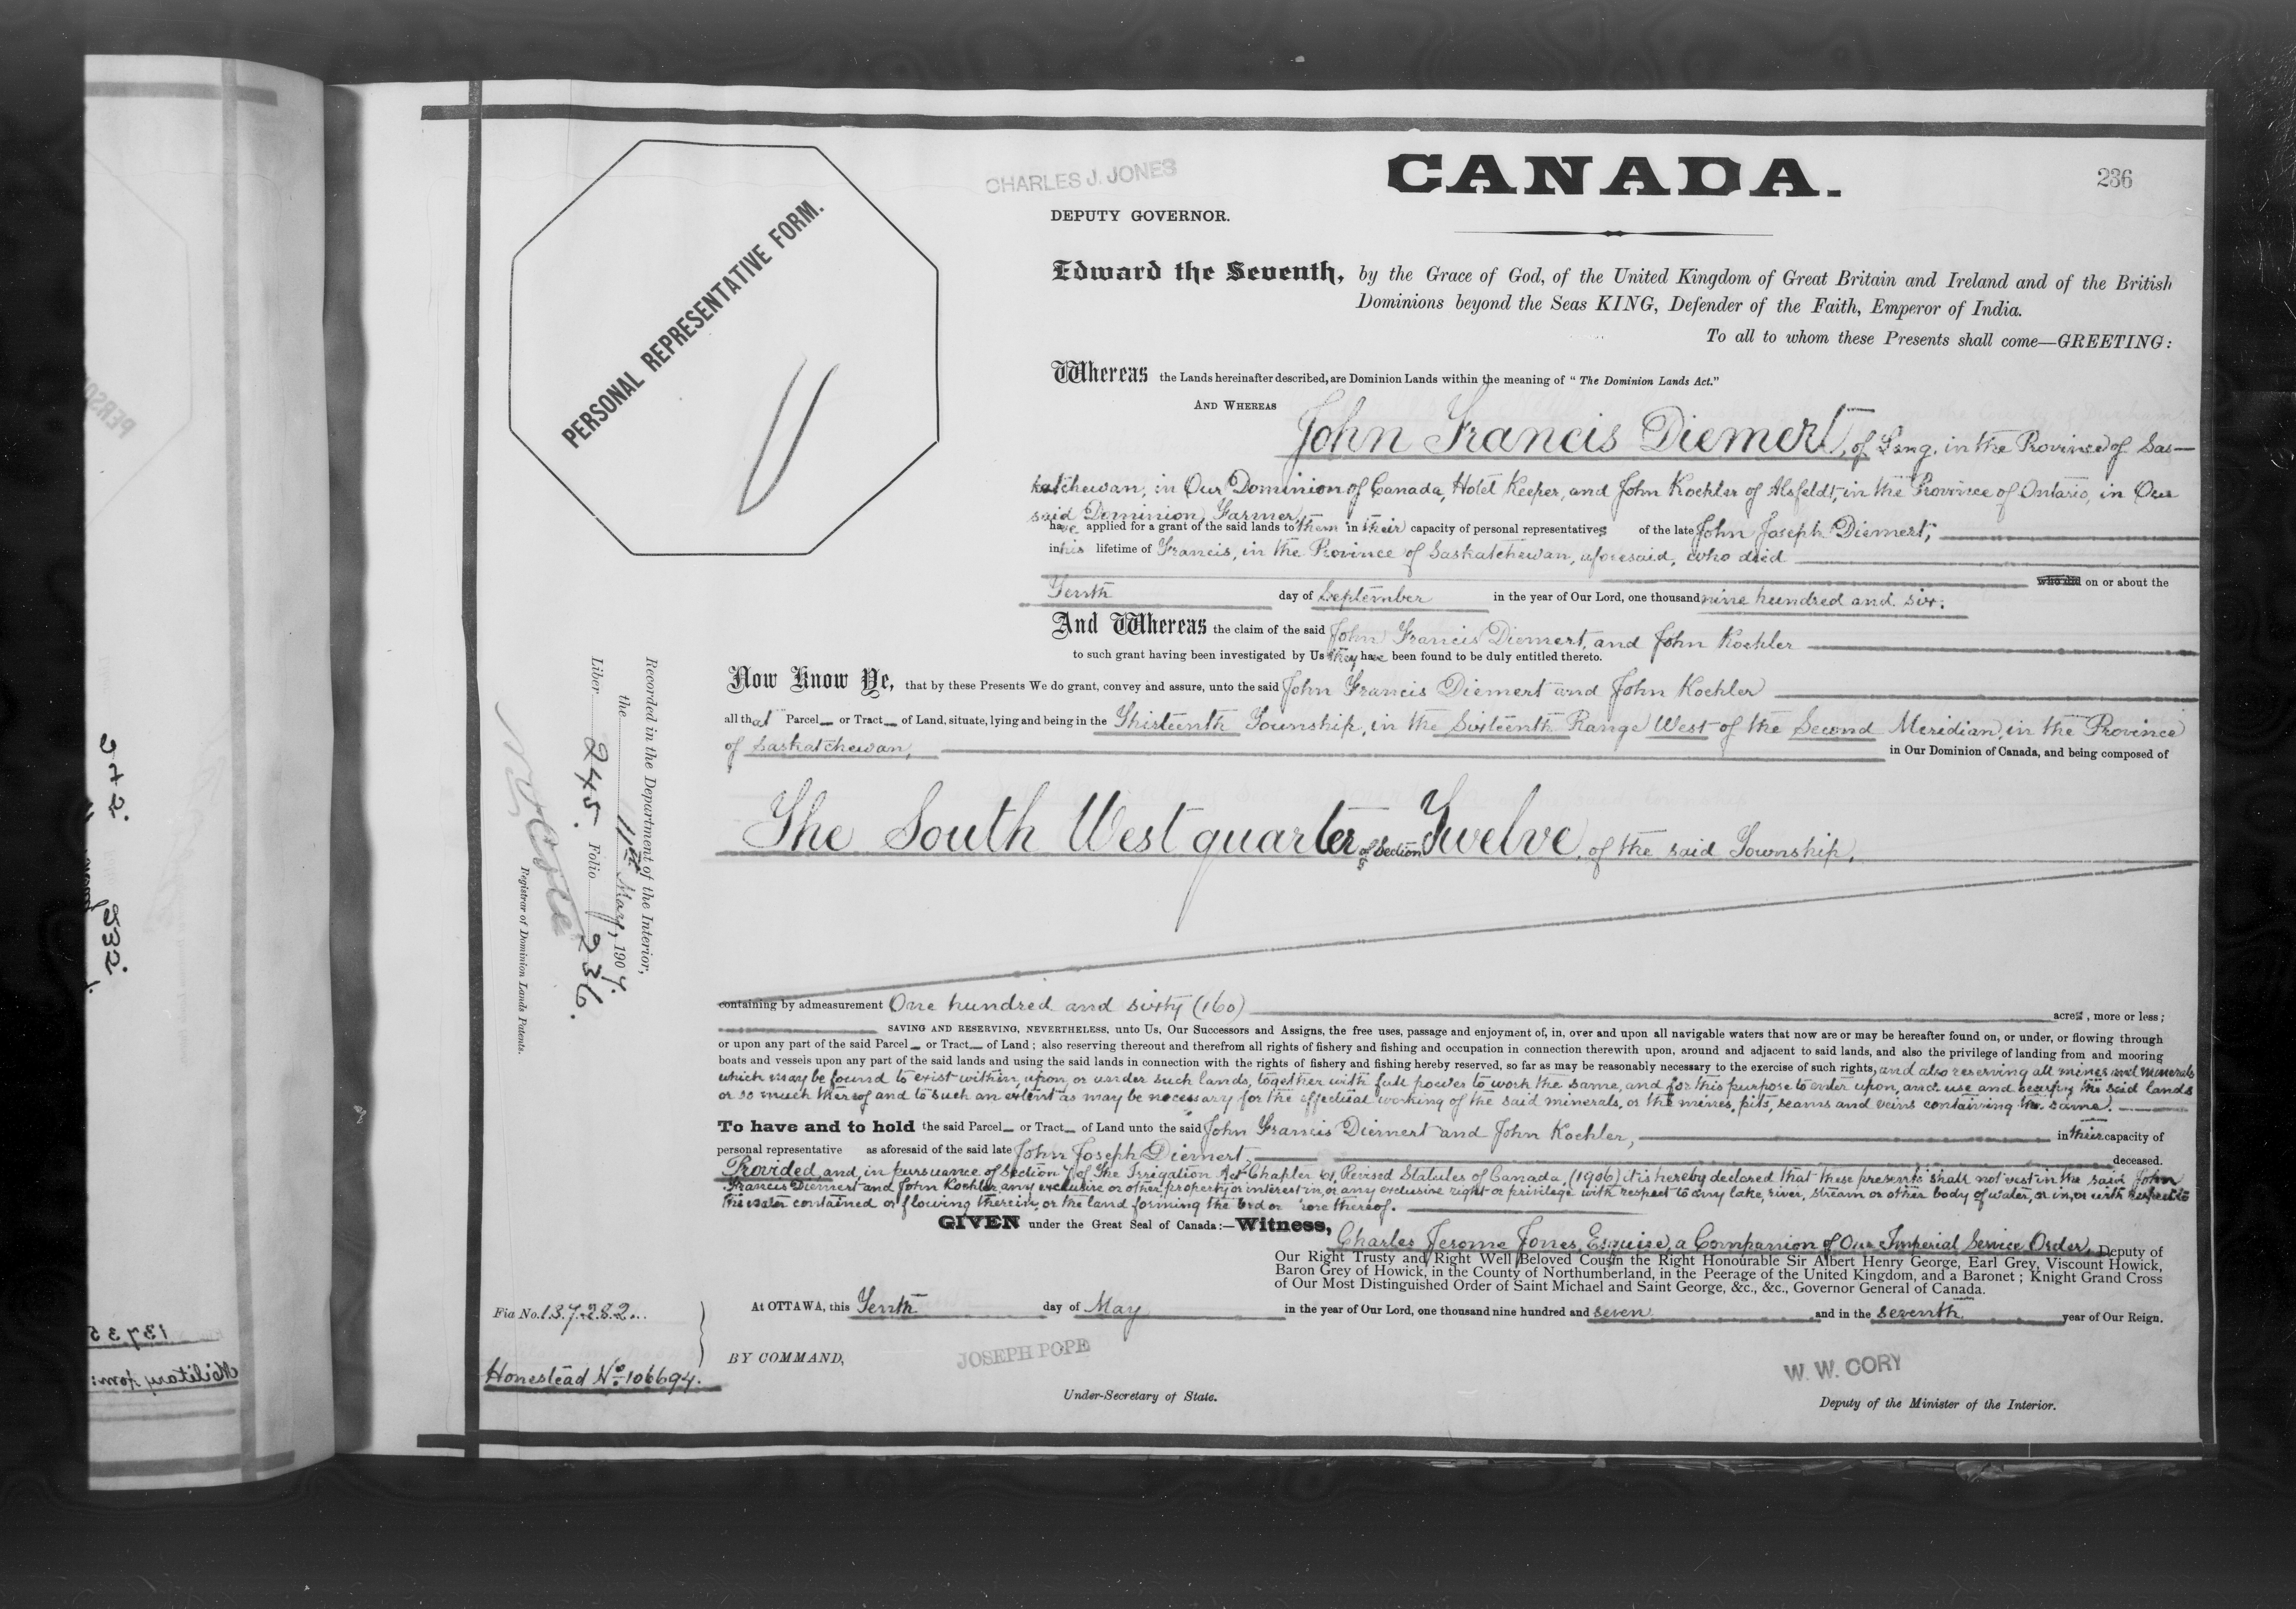 CHARLES J. JONES
CANADA.
236
DEPUTY GOVERNOR.
Edward the Seventh, by the Grace of God, of the United Kingdom of Great Britain and Ireland and of the British
Dominions beyond the Seas KING, Defender of the Faith, Emperor of India.
To all to whom these Presents shall come—GREETING:
PERSONAL REPRESENTATIVE FORM.
Whereas the Lands hereinafter described, are Dominion Lands within the meaning of "The Dominion Lands Act."
AND WHEREAS
John Francis Diemert, of Lang, in the Province of Sas—
katchewan, in Our Dominion of Canada, Hotel Keeper, and John Koehler of Alsfeldt, in the Province of Ontario, in Our
said Dominion, Farmer,
have applied for a grant of the said lands to them in their capacity of personal representatives of the late John Joseph Diemert,
in his lifetime of Francis, in the Province of Saskatchewan, aforesaid, who died
who did on or about the
Tenth day of September in the year of Our Lord, one thousand nine hundred and six.
And Whereas the claim of the said John Francis Diemert, and John Koehler
to such grant having been investigated by Us they have been found to be duly entitled thereto.
Now Know Ye, that by these Presents We do grant, convey and assure, unto the said John Francis Diemert and John Koehler
all that Parcel or Tract of Land, situate, lying and being in the Thirteenth Township, in the Sixteenth Range West of the Second Meridian, in the Province
of Saskatchewan,
in Our Dominion of Canada, and being composed of
The South West quarter of Section Twelve, of the said Township,
containing by admeasurement One hundred and sixty (160) acres, more or less;
SAVING AND RESERVING, NEVERTHELESS, unto Us, Our Successors and Assigns, the free uses, passage and enjoyment of, in, over and upon all navigable waters that now are or may be hereafter found on, or under, or flowing through
or upon any part of the said Parcel or Tract of Land; also reserving thereout and therefrom all rights of fishery and fishing and occupation in connection therewith upon, around and adjacent to said lands, and also the privilege of landing from and mooring
boats and vessels upon any part of the said lands and using the said lands in connection with the rights of fishery and fishing hereby reserved, so far as may be reasonably necessary to the exercise of such rights, and also reserving all mines and minerals
which may be found to exist within, upon, or under such lands, together with full power to work the same, and for this purpose to enter upon, and use and occupy the said lands
or so much thereof and to such an extent as may be necessary for the effectual working of the said minerals, or the mines, pits, seams and veins containing the same.
To have and to hold the said Parcel or Tract of Land unto the said John Francis Diemert and John Koehler, in their capacity of
personal representative as aforesaid of the said late John Joseph Diemert, deceased.
Provided, and, in pursuance of Section 7 of The Irrigation Act Chapter 61, Revised Statutes of Canada, (1906) it is hereby declared that these presents shall not vest in the said John
Francis Diemert and John Koehler any exclusive or other property or interest in, or any exclusive right or privilege with respect to any lake, river, stream or other body of water, or in, or with respect to
the water contained or flowing therein, or the land forming the bed or thereof.
GIVEN under the Great Seal of Canada:—Witness, Charles Jerome Jones, Esquire, a Companion of Our Imperial Service Order, Deputy of
Our Right Trusty and Right Well Beloved Cousin the Right Honourable Sir Albert Henry George, Earl Grey, Viscount Howick,
Baron Grey of Howick, in the County of Northumberland, in the Peerage of the United Kingdom, and a Baronet; Knight Grand Cross
of Our Most Distinguished Order of Saint Michael and Saint George, &c., &c., Governor General of Canada.
At OTTAWA, this Tenth day of May in the year of Our Lord, one thousand nine hundred and seven and in the seventh year of Our Reign.
BY COMMAND,
JOSEPH POPE
Under-Secretary of State.
W. W. CORY
Deputy of the Minister of the Interior.
Recorded in the Department of the Interior,
the 11th May, 1907.
Liber 245. Folio 236.
Registrar of Dominion Lands Patents.
Fia No. 137282
Homestead No. 106694.